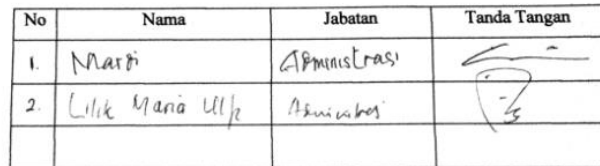 No Nama Jabatan Tanda Tangan
1. Margi Administrasi
2. Lilik Maria Ulfa Administrasi